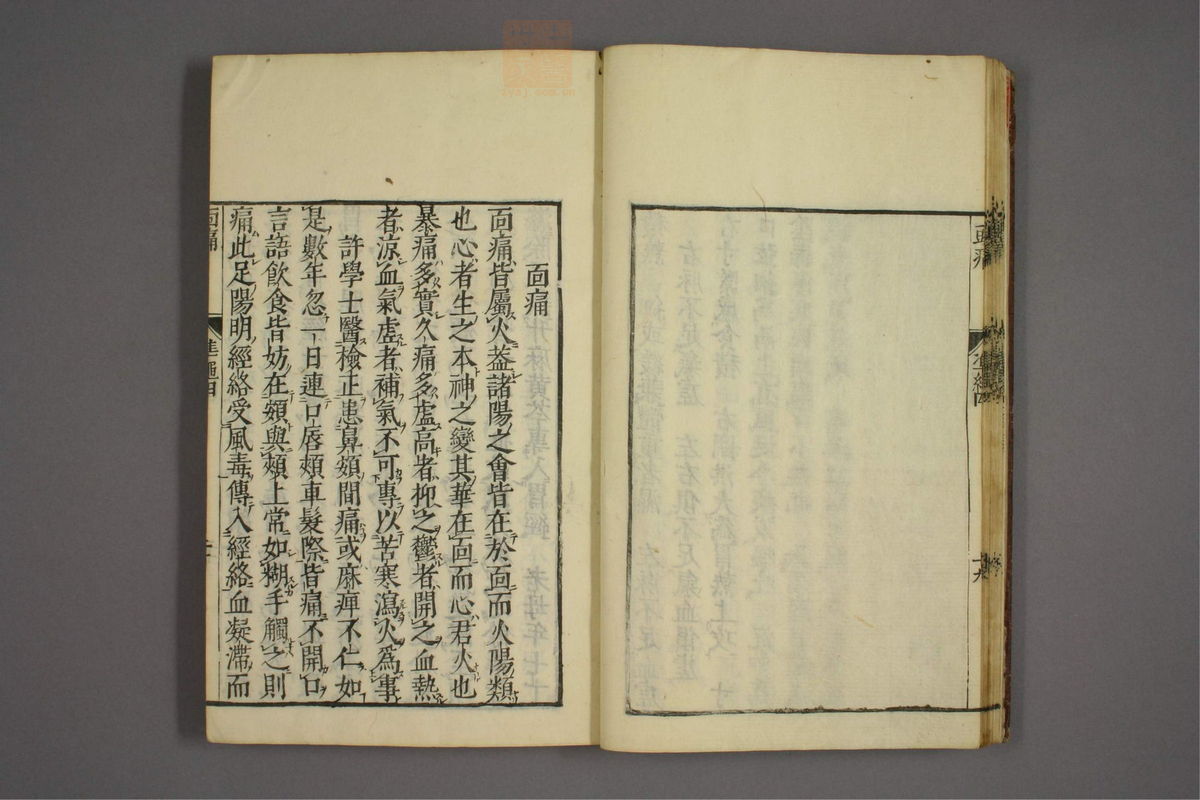 面痛
面痛皆屬火葢諸陽之會皆在於面而火陽類
也心者生之本神之變其華在面而心君火也
暴痛多實久痛多虛高者抑之鬱者開之血熱
者涼血氣虛者補氣不可專以苦寒瀉火爲事
許學士醫檢正患鼻頞間痛或麻痺不仁如
是數年忽一日連口唇頰車髮際皆痛不開口
言語飲食皆妨在頞與頰上常如糊手觸之則
痛此足陽明經絡受風毒傳入經絡血凝滯而
面痛